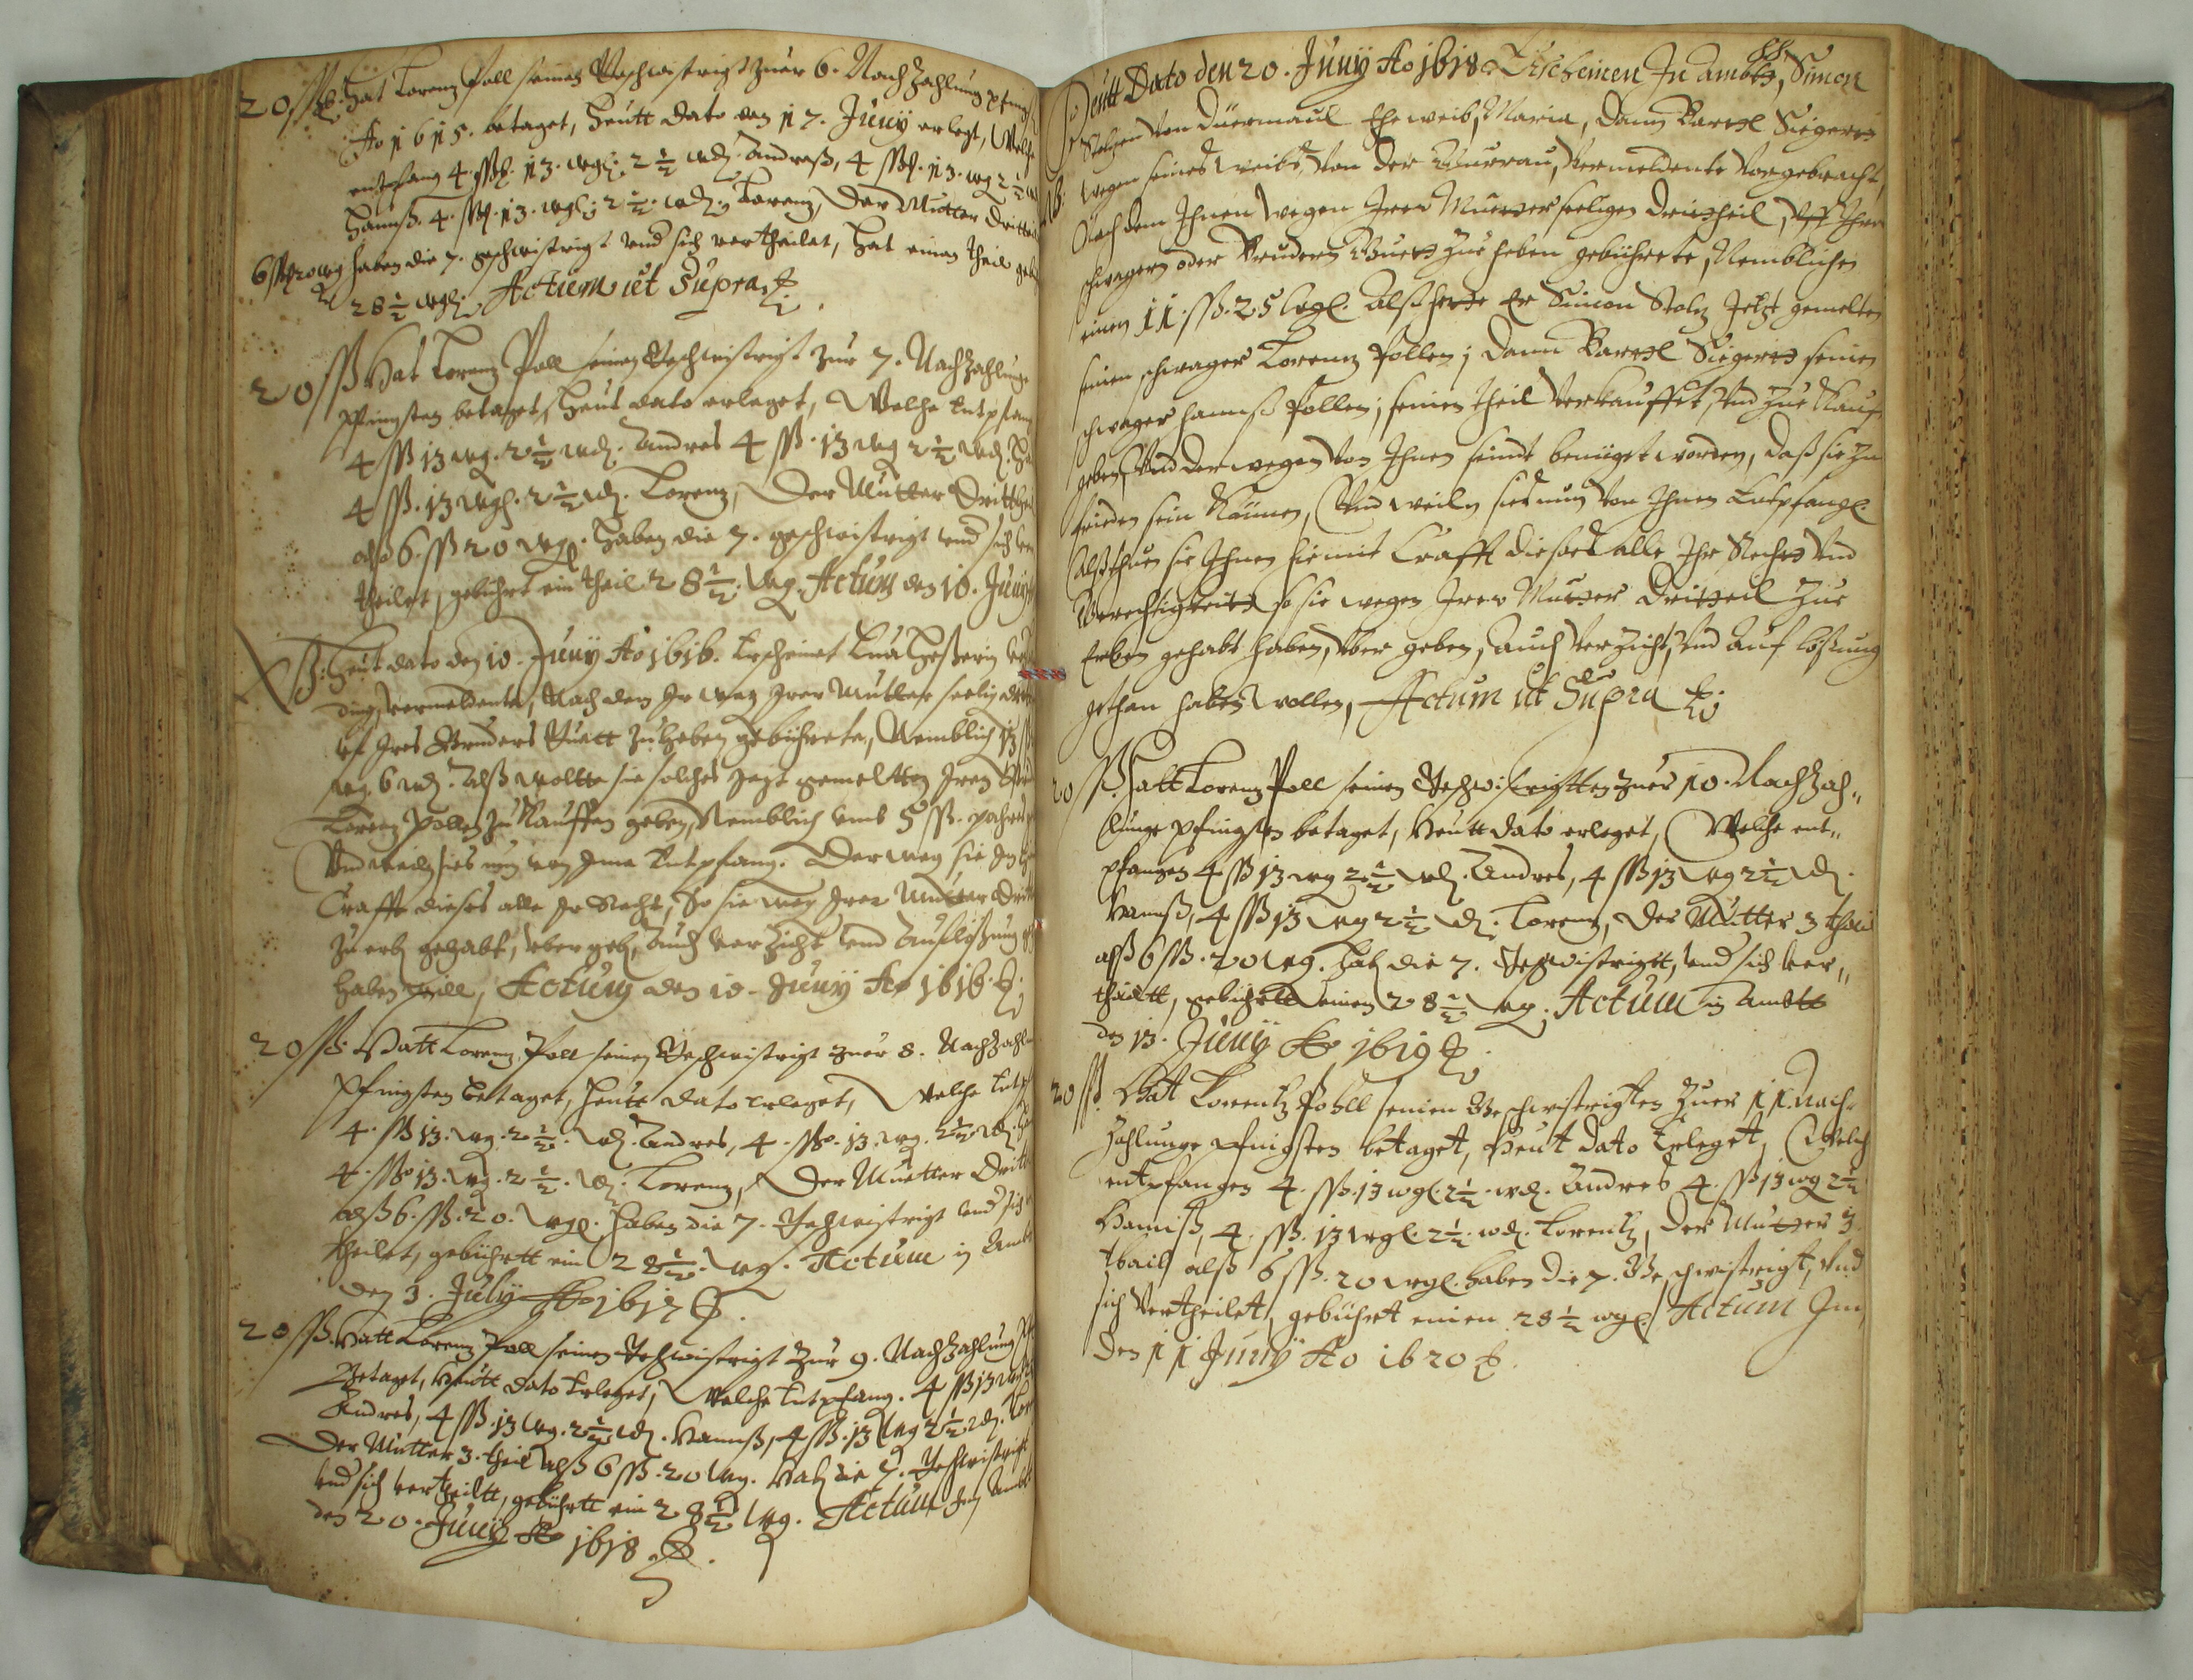 20 ßß. Hat Lorenz Poll seinen Geschwistrigt zuer 6. Nachzahlung Pfingst
Ao 1615. betaget, Heutt dato den 17. Juny erlegt, Welche
entpfang 4. ßß. 13. wgl. 2 ½ wd. Andreß, 4 ßß. 13. wg 2 ½ w
Hannß. 4. ßß. 13. wgl. 2 ½ wd. Lorenz, Der Mutter dritte
6 ßß 20 wg haben die 7. geschwistrigt vnd sich vertheilet, hat einen theil geb
28 ½ wgl. Actum ut Supra
20 ßß Hat Lorenz Poll seinen Geschwistrigt zur 7. Nachzahlunge
Pfingsten betaget, Heut dato erleget, Welche entpfang
4 ßß 13 wg. 2 ½ wd. Andres 4 ßß. 13 wg 2 ½ wd. Ha
4 ßß. 13 wgl. 2 ½ wd. Lorenz, Der Mutter dritthei
alß 6. ßß 20 wgl. haben die 7. geschwistrigt vnd sich ver
theilet, gebührt ein theil 28 ½ wg. Actum den 10. Juny
Heut dato den 10. Juny Ao 1616. Erscheinet
vermeldente, Nach dem Ir weg Irer Mutter seelig dritt
vf Ires Bruders Guett zu heben gebührete, Nemblich 13 ßß
wg. 6 wd. Alß wollte sie solches jezt gemeltten Iren
Lorenz Pollen zu Kauffen geben, Nemblich vmb 5 ßß.
Vnd weiln sies nun von Ime Entpfang. Derweg sie Im
Crafft dieses alle Ir Recht, So sie weg Irer Mutter dritt
zu erb gehabt, vbergeb, Auch verzicht vnd Auflaßung
haben will, Actum den 10. Juny Ao 1616.
20 ßß. Hatt Lorenz Poll seinen Geschwistrigt zuer 8. Nachzahlu
Pfingsten betaget, Heutt dato erleget, Welche Entpf
4. ßß 13. wg. 2 ½. wd. Andres, 4. ßß. 13. wg. 2 ½ wd.
4. ßß 13. wg. 2 ½. wd. Lorenz, Der Muetter dritt
alß 6. ßß. 20. wgl. haben die 7. Geschwistrigt vnd sich
theilet, gebührtt ein 28 ½. wg. Actum in Ambt
den 3. July Ao 1617
20 ßß. Hatt Lorenz Poll seinen Geschwistrigt zur 9. Nachzahlung
Betaget, Heutt dato Erleget, Welche Entpfang. 4 ßß 13 wg
Andres, 4 ßß. 13 wg. 2 ½ wd. Hannß, 4 ßß. 13 wg 2 ½ wd. Lor
Der Mutter 3. theil alß 6 ßß. 20 wg. Hab die 7. Geschwistrigt
vnd sich vertheiltt, gebührtt ein 28 ½ wg. Actum Im Ambt
den 20. Juny Ao 1618
88.
Heutt Dato den 20. Juny Ao 1618 Erscheinen In ambtt, Simon
Stolzen von Düermaul Eheweib, Maria, dann Bartzl Siegertt
wegen seines weibs, von der Vermeldente vorgebracht,
Nach dem Ihnen wegen Irer Mutter seeligen drittheil, Vff Ihren
schwagern oder Brudern Guett zue heben gebührete, Nemblichen
einen 11. ßß. 25 wgl. Alß hette Er Simon Stolz Jetzt gemelten
seinen schwager Lorenz Pollen; Dann Bartzl Siegertt seinen
schwager Hannß Pollen; seinen theil Verkauffet, Vnd zue Kauf
geben, Vnd derwegen von Ihnen seindt benüeget worden, daß sie zu
frieden sein Können, Vnd weiln sies nun von Ihnen Entpfangl.
Alß thuen sie Ihnen hiemit Crafft dieses alle Ihr Recht Vnd
Gerechtigkeit so sie wegen Irer Mutter dritteil zue
Erben gehabt haben, Vber geben, auch verzicht, Vnd Auf loßung
gethan haben wollen, Actum ut Supra
20 ßß. Hatt Lorenz Poll seinen Geschwistrigtten zuer 10. Nachzah,,
lunge Pfingsten betaget, Heutt dato erleget, Welche ent,,
pfangen 4 ßß 13 wg 2 ½ wd. Andres, 4 ßß 13 wg 2 ½ wd.
Hannß, 4 ßß 13 wg 2 ½ wd. Lorenz, der Mutter 3 theil
alß 6 ßß. 20 wg. Hab die 7. Geschwistrigtt, vnd sich ver,,
theiltt, gebührtt einen 28 ½ wg. Actum in Ambtt
den 13. Juny Ao 1619
20 ßß. Hatt Lorentz Pohll seinen Geschwistrigten Zuer 11. Nach-
Zahlunge Pfingsten betaget, Heut dato Erleget, Welche
entpfangen 4. ßß. 13 wgl. 2 ½ wd. Andres 4. ßß 13 wg 2 ½
Hanniß, 4. ßß. 13 wgl. 2 ½ wd. Lorentz, der Mutter 3
thail alß 6 ßß. 20 wgl. haben die 7. Geschwistrigt, Vnd
sich Vertheilet, gebührt einen 28 ½ wgl. Actum Im
den 11 Juny Ao 1620